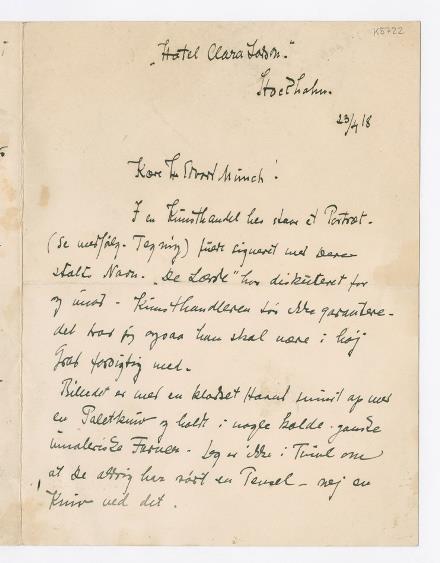 K5722
„Hotel Clara Larson."
Stockholm.
23/4 18
Kære Hr Edvard Munch!
I en Kunsthandel her staar et Portræt -
(se medfølg. Tegning) fuldt signeret med Deres
stolte Navn. „De Lærde" har diskuteret for
og imod - Kunsthandleren tør ikke garantere -
det tror jeg ogsaa han skal være i høj
Grad forsigtig med.
Billedet er med en kladset Haand smurt op med
en Paletkniv og holdt i nogle kolde - ganske
umaleriske Farver. Jeg er ikke i Tvivl om
at De aldrig har rørt en Pensel - nej en
Kniv ved det.